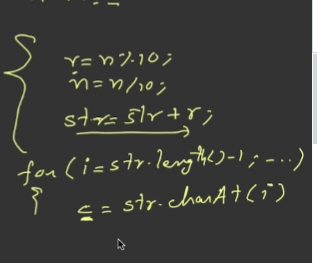 {
r = n%10;
n = n/10;
str = str + r;
for (i = str.length()-1; -...)
{
c = str.charAt(i)